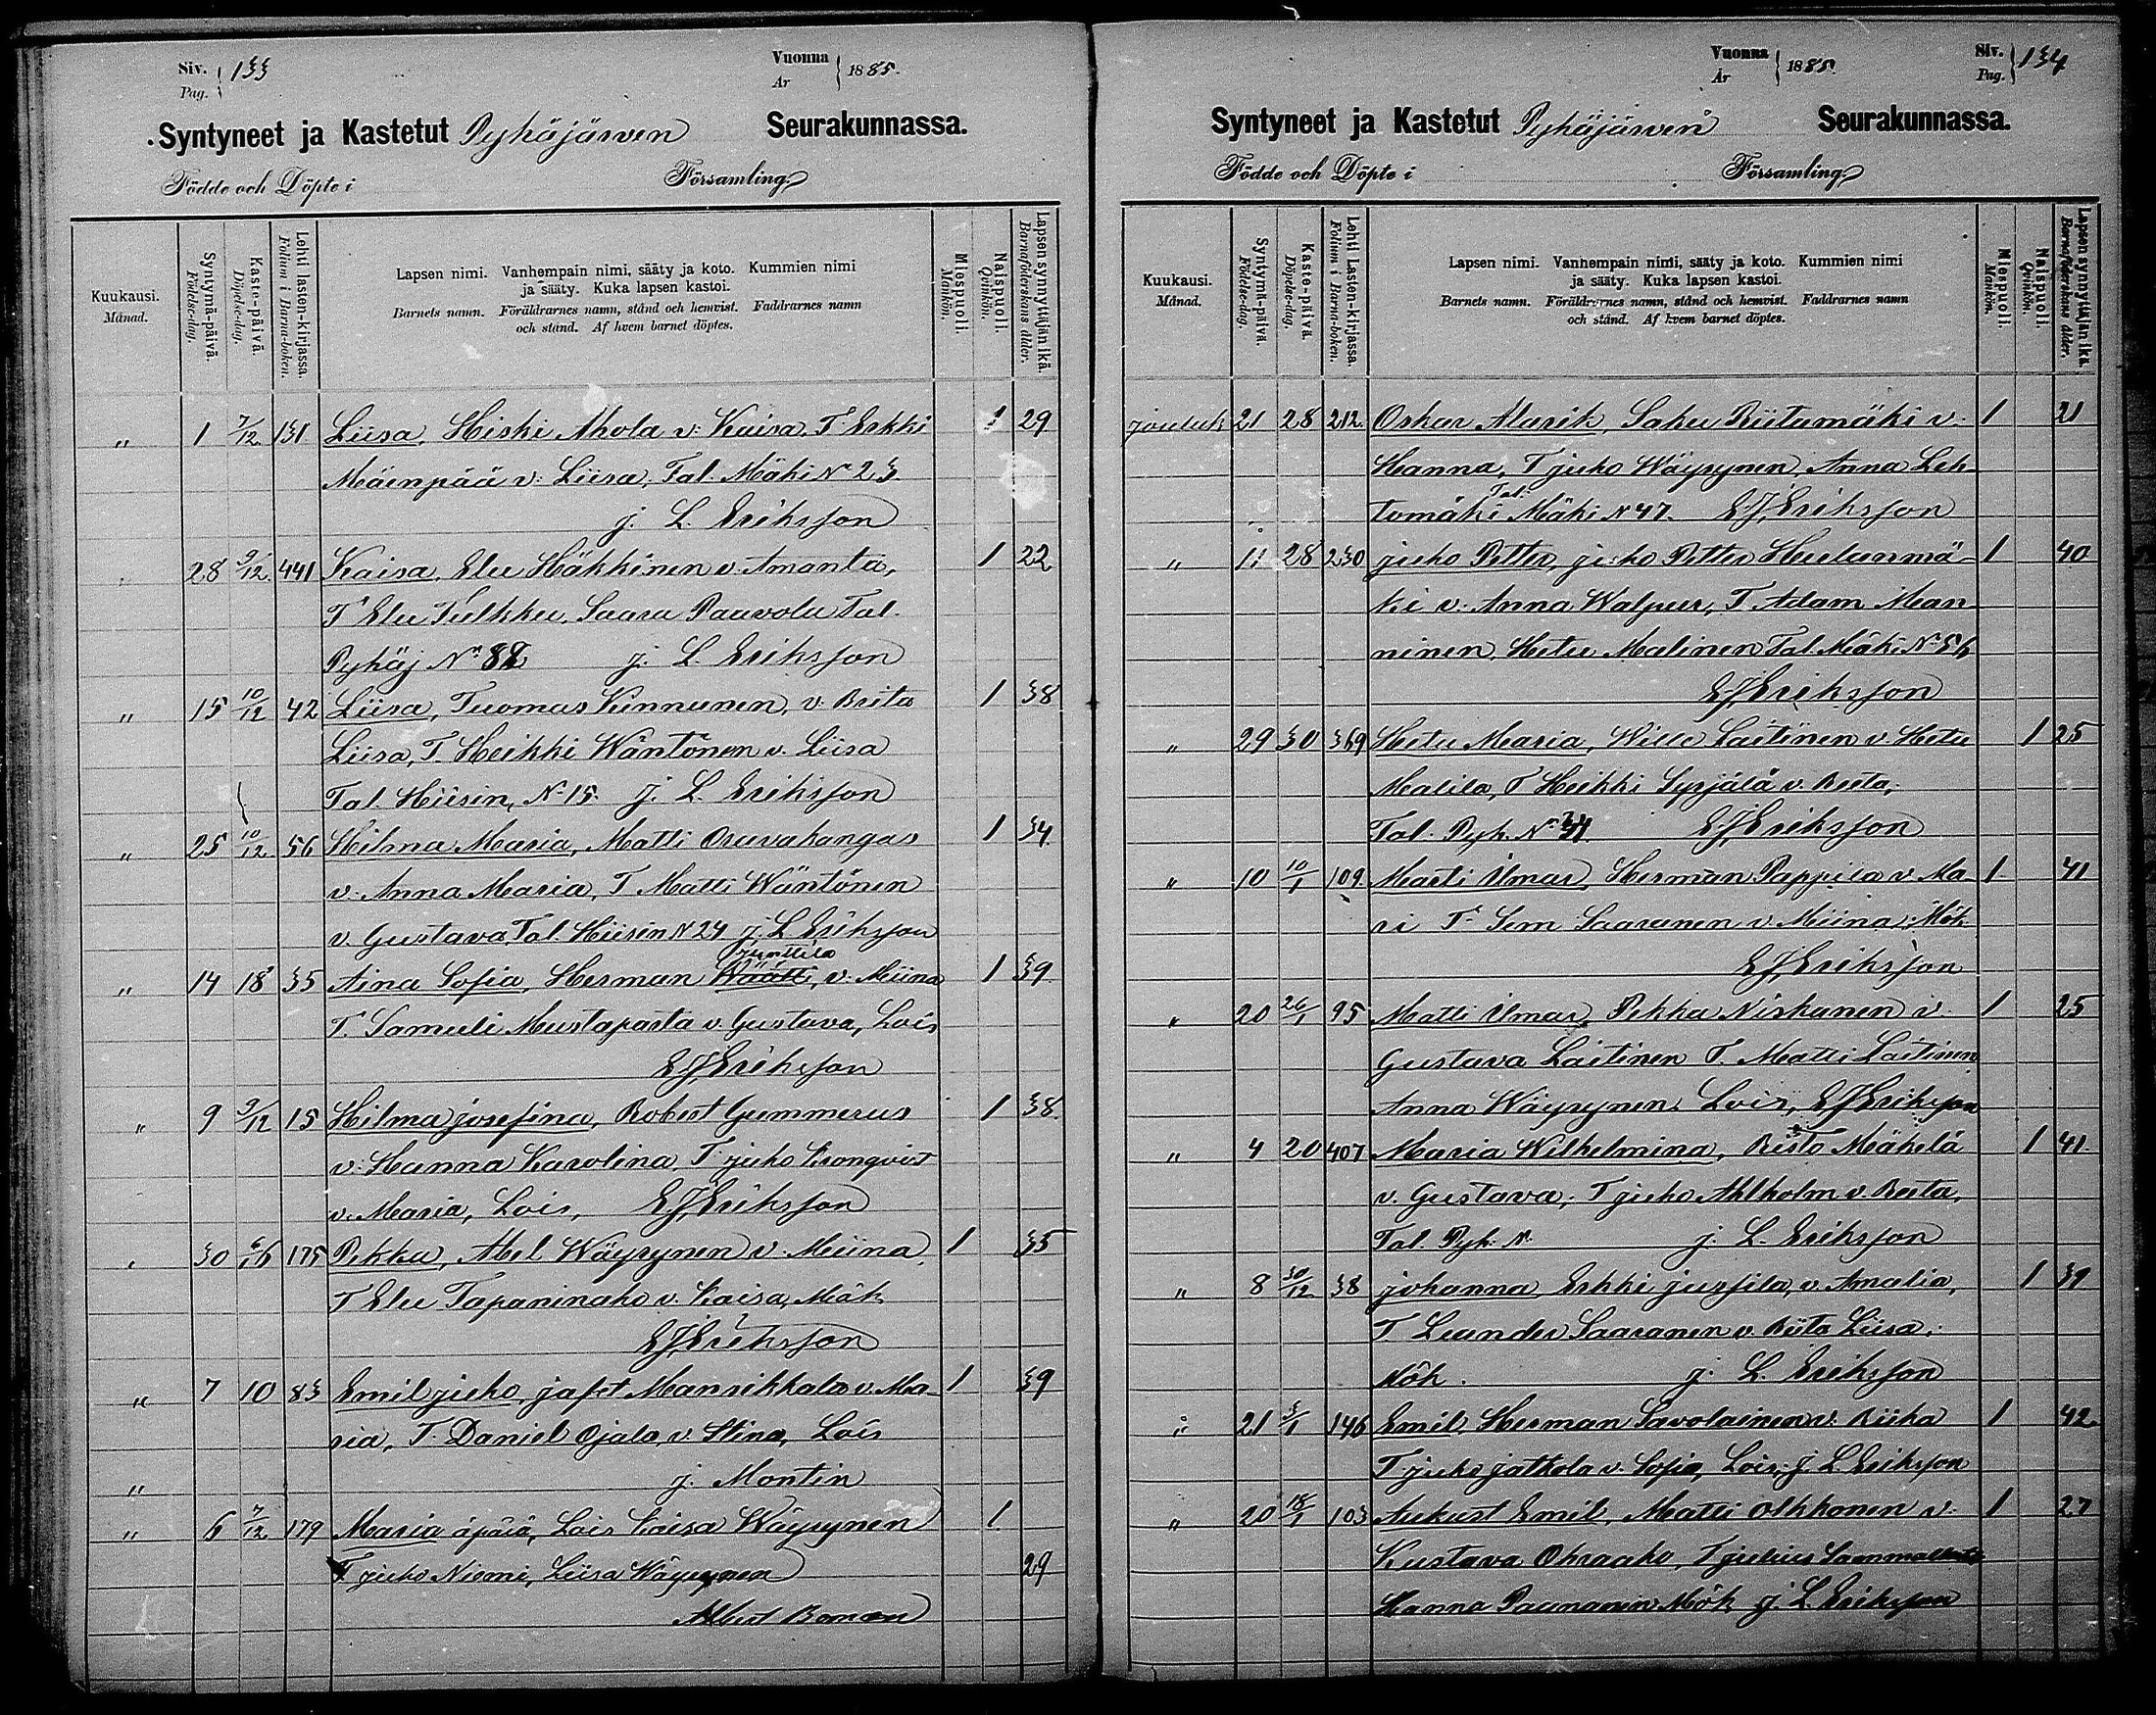 Siv. Pag. 133
Vuonna År 1885.
Syntyneet ja Kastetut Pyhäjärven Seurakunnassa.
Födde och Döpte i Församling
Kuukausi. Månad.
Syntymä-päivä. Födelse-dag.
Kaste-päivä. Döpelse-dag.
Lehti lasten-kirjassa. Folium i Barna-boken.
Lapsen nimi. Vanhempain nimi, sääty ja koto. Kummien nimi
ja sääty. Kuka lapsen kastoi.
Barnets namn. Föräldrarnes namn, stånd och hemvist. Faddrarnes namn
och stånd. Af hvem barnet döptes.
Miespuoli. Mankön.
Naispuoli. Qvinkön.
Lapsen synnyttäjän ikä. Barnaföderskans ålder.
" 1 7/12 131 Liisa, Hiski Ahola v: Kaisa, T. Erkki 1 29
Mäenpää v: Liisa, Tal. Mäki No 23.
j. L. Eriksson
28 9/12 441 Kaisa, Elu Häkkinen v. Amanta, 1 22
T Elu Tulkku, Saara Paavola Tal.
Pyhäj No 82 j. L. Eriksson
" 15 10/12 42 Liisa, Tuomas Kinnunen, v: Brita 1 38
Liisa, T. Heikki Wäntönen v. Liisa
Tal. Hiisin, No 15. j. L. Eriksson
" 25 10/12 56 Hilma Maria, Matti Oravakangas 1 34
v. Anna Maria, T. Matti Wäntönen
v. Gustava, Tal. Hiisin N 24 j. L. Eriksson
Junttila
" 14 18 35 Aina Sofia, Herman Väätti, v. Miina 1 39.
T. Samuli Mustaparta v. Gustava, Lois
EJ Eriksson
" 9 9/12 15 Hilma josefina, Robert Gummerus 1 38.
v. Hanna Karolina, T. juho Kronqvist
v. Maria, Lois, EJ Eriksson
30 175 Pekka, Abel Wäyrynen v. Miina 1 35
T Elu Tapaninaho v. Kaisa, Mök
EJ Eriksson
" 7 10 83 Emil juho, jafet Mansikkala v. Ma- 1 39
ria, T. Daniel Ojala, v. Stina, Lois
" j. Montin
" 6 7/12 179 Maria äpärä, Lois Kaisa Wäyrynen 1
T juho Niemi, Liisa Wäyrynen 29
Albert Boman
Vuonna År 1885.
Siv. Pag. 134
Syntyneet ja Kastetut Pyhäjärven Seurakunnassa.
Födde och Döpte i Församling
Kuukausi. Månad.
Syntymä-päivä. Födelse-dag.
Kaste-päivä. Döpelse-dag.
Lehti Lasten-kirjassa. Folium i Barna-boken.
Lapsen nimi. Vanhempain nimi, sääty ja koto. Kummien nimi
ja sääty. Kuka lapsen kastoi.
Barnets namn. Föräldrarnes namn, stånd och hemvist. Faddrarnes namn
och stånd. Af hvem barnet döptes.
Miespuoli. Mankön.
Naispuoli. Qvinkön.
Lapsen synnyttäjän ikä. Barnaföderskans ålder.
jouluk 21 28 212 Oskar Alarik, Saku Riitamäki v. 1 21
Hanna, T juho Wäyrynen, Anna Leh
tomäki Tal: Mäki N 47. EJ Eriksson
" 11 28 230 juho Petter, juho Petter Huluanmä- 1 40
ki v. Anna Walpur, T. Adam Man
ninen, Hetu Malinen Tal. Mäki No 56
EJ Eriksson
" 29 30 369 Hetu Maria, Wille Laitinen v. Hetu 1 25
Malila, T Heikki Syrjälä v. Reeta,
Tal. Pyh. No EJ Eriksson
" 10 10/1 109 Martti Ilmar, Herman Pappila v. Ma 1 41
ri T. Sem Saaranen v. Miina, Mök
EJ Eriksson
" 20 26/1 95 Matti Ilmar, Pekka Niskanen v. 1 25
Gustava Laitinen T. Matti Laitinen
Anna Wäyrynen Lois, EJ Eriksson
" 4 20 407 Maria Wilhelmina, Risto Mäkelä 1 41
v. Gustava, T juho Ahlholm v. Reeta,
Tal. Pyh. N. j. L. Eriksson
" 8 30/12 38 johanna Erkki jussila, v. Amalia, 1 39
T Leander Saaranen v. Riita Liisa,
Mök. j. L. Eriksson
" 21 3/1 146 Emil, Herman Savolainen v. Riika 1 42
T juho jatkola v. Sofia, Lois, j. L. Eriksson
" 20 18/1 103 Aukust Emil, Matti Olkkonen v. 1 27
Kustava Ohraaho, T julius
Hanna Paunanen Mök j. L. Eriksson